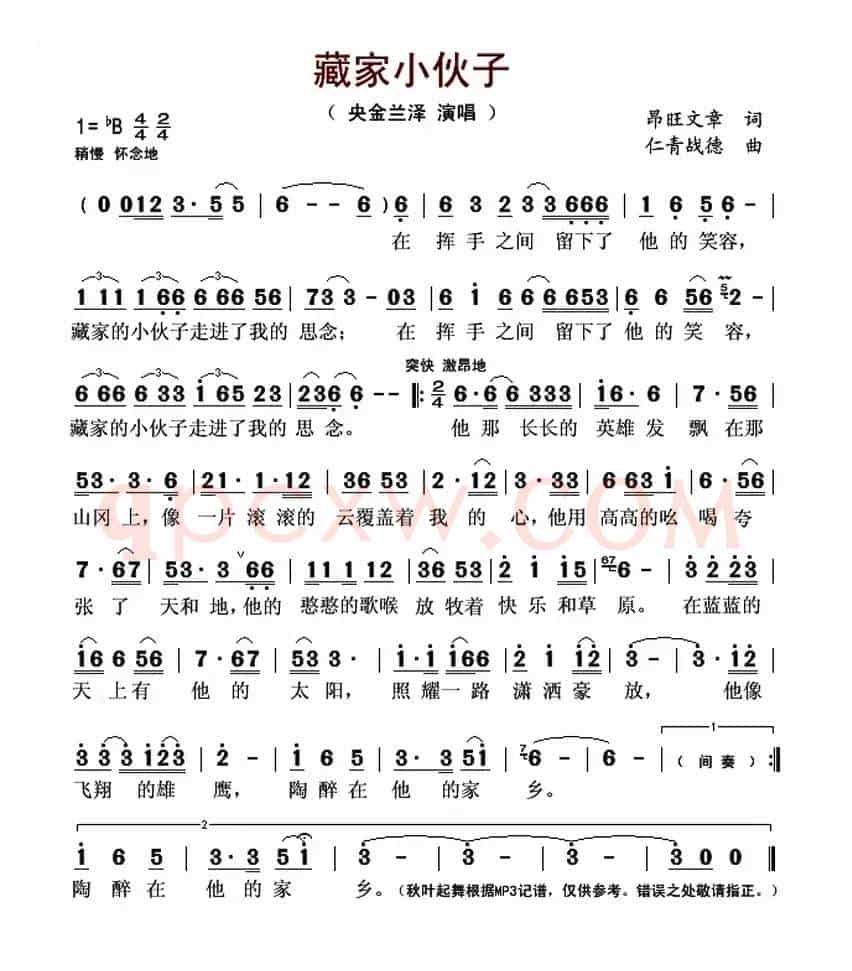 藏家小伙子
（ 央金兰泽 演唱 ）
1=♭B 4/4 2/4
昂旺文章 词
稍慢 怀念地
仁青战德 曲
( 0 012 3· 5 5 | 6 - - 6 ) 6 | 6 3 2 3 3 666 | 1 6 5 6 - |
在 挥 手 之 间 留下了 他 的 笑容，
1 11 1 66 6 66 56 | 73 3 - 03 | 6 1 6 6 6 653 | 6 6 56 2 - |
藏家的小伙子走进了我的 思念； 在 挥 手 之间 留下了他 的 笑 容，
突快 激昂地
6 66 6 33 1 65 23 | 236 6 - - |: 2/4 6·6 6 333 | 16· 6 | 7· 56 |
藏家的小伙子走进了我的 思 念。 他 那 长长的 英雄 发 飘 在那
53· 3· 6 | 21· 1·12 | 36 53 | 2· 12 | 3·33 | 6 63 1 | 6·56 |
山冈 上，像 一片 滚 滚的 云覆盖着 我 的 心，他用 高高的吆 喝 夸
7·67 | 53· 3 66 | 11 1 12 | 36 53 | 2 1 15 | 67 6 - | 3 2 23 |
张 了 天和 地，他的 憨憨的歌喉 放 牧着 快 乐 和草 原。 在蓝蓝的
16 6 56 | 7·67 | 53 3· | 1·1 166 | 2 1 12 | 3 - | 3·12 |
天 上有 他 的 太 阳， 照 耀一路 潇洒豪 放， 他像
1
3 3 3 123 | 2 - | 1 6 5 | 3·3 51 | 7 6 - | 6 - | （ 间 奏 ）:|
飞翔 的雄 鹰， 陶醉在 他 的家 乡。
2
1 6 5 | 3·3 5 1 | 3 - | 3 - | 3 - | 3 0 0 ‖
陶 醉 在 他 的 家 乡。（秋叶起舞根据MP3记谱，仅供参考。错误之处敬请指正。）
qpcxw.com